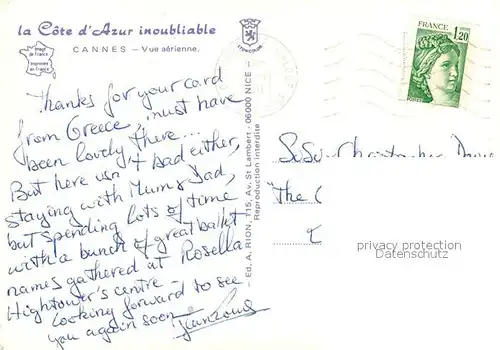 la Côte d'Azur inoubliable
CANNES – Vue aérienne.
Image de France
Imprimée en France
Thanks for your card
from Greece, must have
been lovely there...
But here isn't bad either,
staying with Mum & Dad,
but spending lots of time
with a bunch of great ballet
names gathered at Rosella
Hightower's centre –
Looking forward to see
you again soon
– Ed. A. RION, T15, Av. St Lambert - 06000 NICE –
Reproduction Interdite
FRANCE
1,20
POSTES
Christopher
"The
privacy protection
Datenschutz